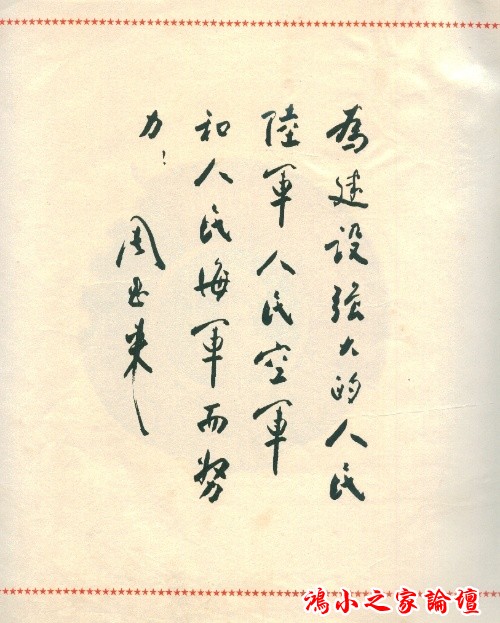 為建設强大的人民
陸軍人民空軍
和人民海軍而努
力！
周恩来
鴻小之家論壇